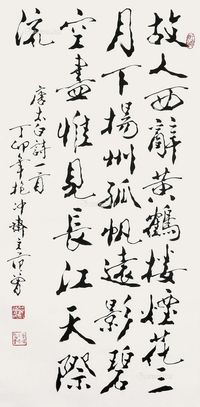 故人西辭黃鶴樓煙花三
月下揚州孤帆遠影碧
空盡惟見長江天際
流
唐李白詩一首
丁卯年抱冲齋主范曾